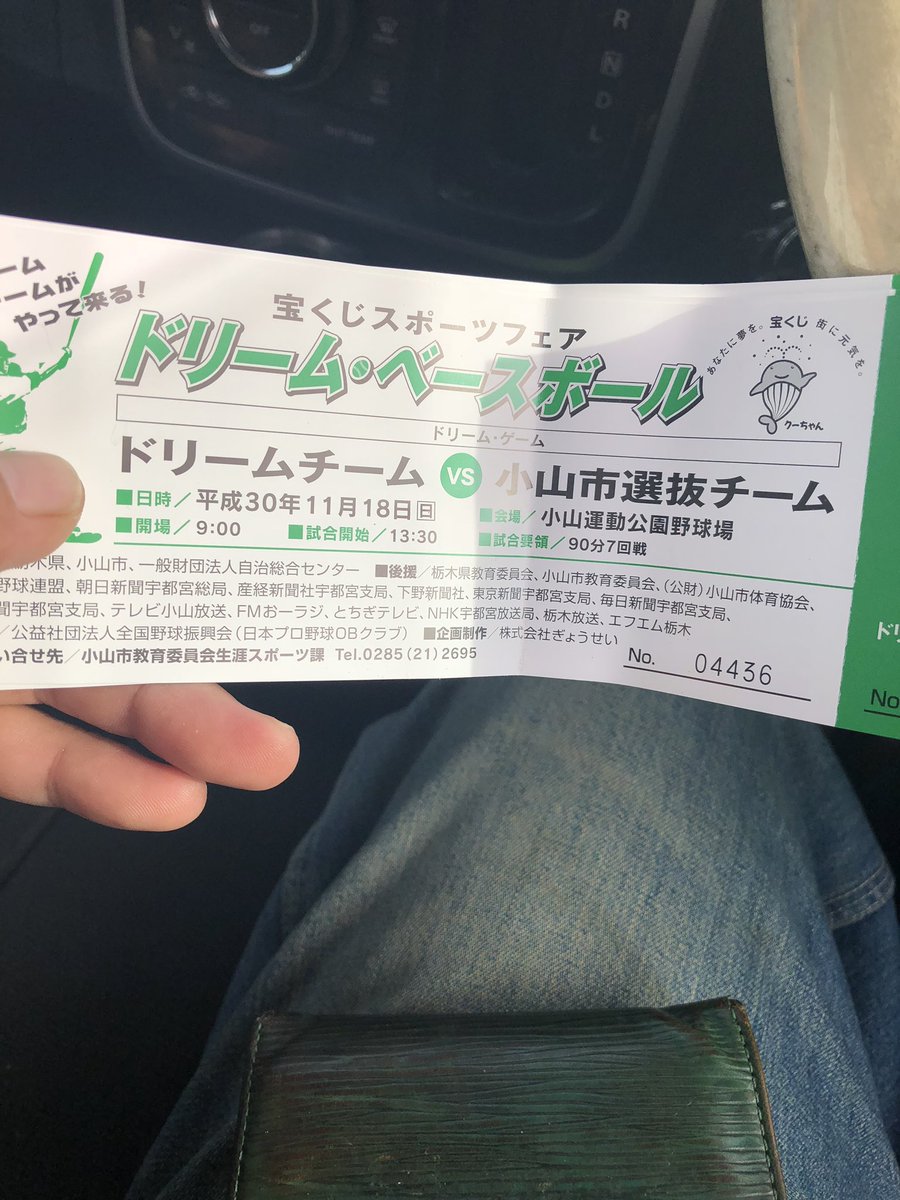 R
N
D
L
ーム
ームが
やって来る!
宝くじスポーツフェア
ドリーム・ベースボール
あなたに夢を。宝くじ 街に元気を。
クーちゃん
ドリーム・ゲーム
ドリームチーム VS 小山市選抜チーム
■日時/平成30年11月18日日
■会場/小山運動公園野球場
■開場/9:00 ■試合開始/13:30
■試合要領/90分7回戦
栃木県、小山市、一般財団法人自治総合センター ■後援/栃木県教育委員会、小山市教育委員会、(公財)小山市体育協会、
野球連盟、朝日新聞宇都宮総局、産経新聞社宇都宮支局、下野新聞社、東京新聞宇都宮支局、毎日新聞宇都宮支局、
聞宇都宮支局、テレビ小山放送、FMおーラジ、とちぎテレビ、NHK宇都宮放送局、栃木放送、エフエム栃木
/公益社団法人全国野球振興会(日本プロ野球OBクラブ) ■企画制作/株式会社ぎょうせい
い合せ先/小山市教育委員会生涯スポーツ課 Tel.0285(21)2695
No. 04436
ドリ
No